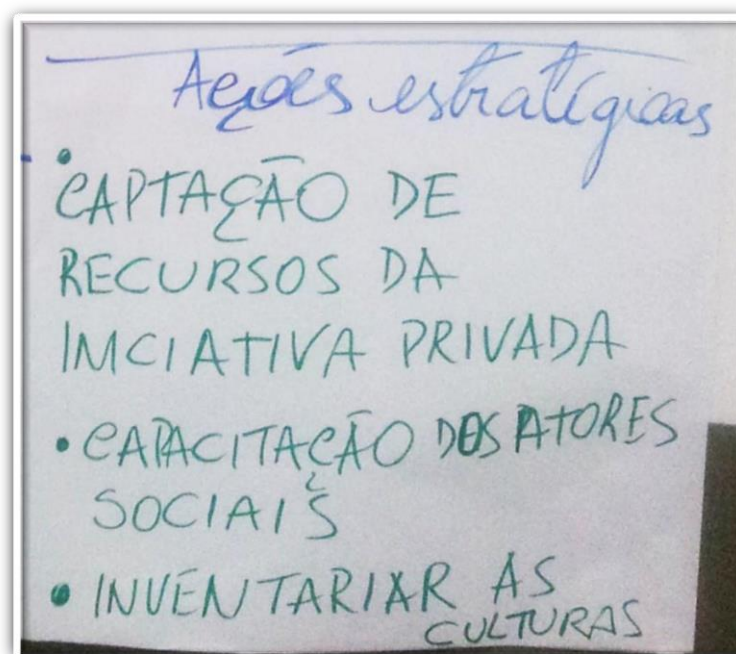 Ações estratégicas
• CAPTAÇÃO DE
RECURSOS DA
INICIATIVA PRIVADA
• CAPACITAÇÃO DOS ATORES
SOCIAIS
• INVENTARIAR AS
CULTURAS